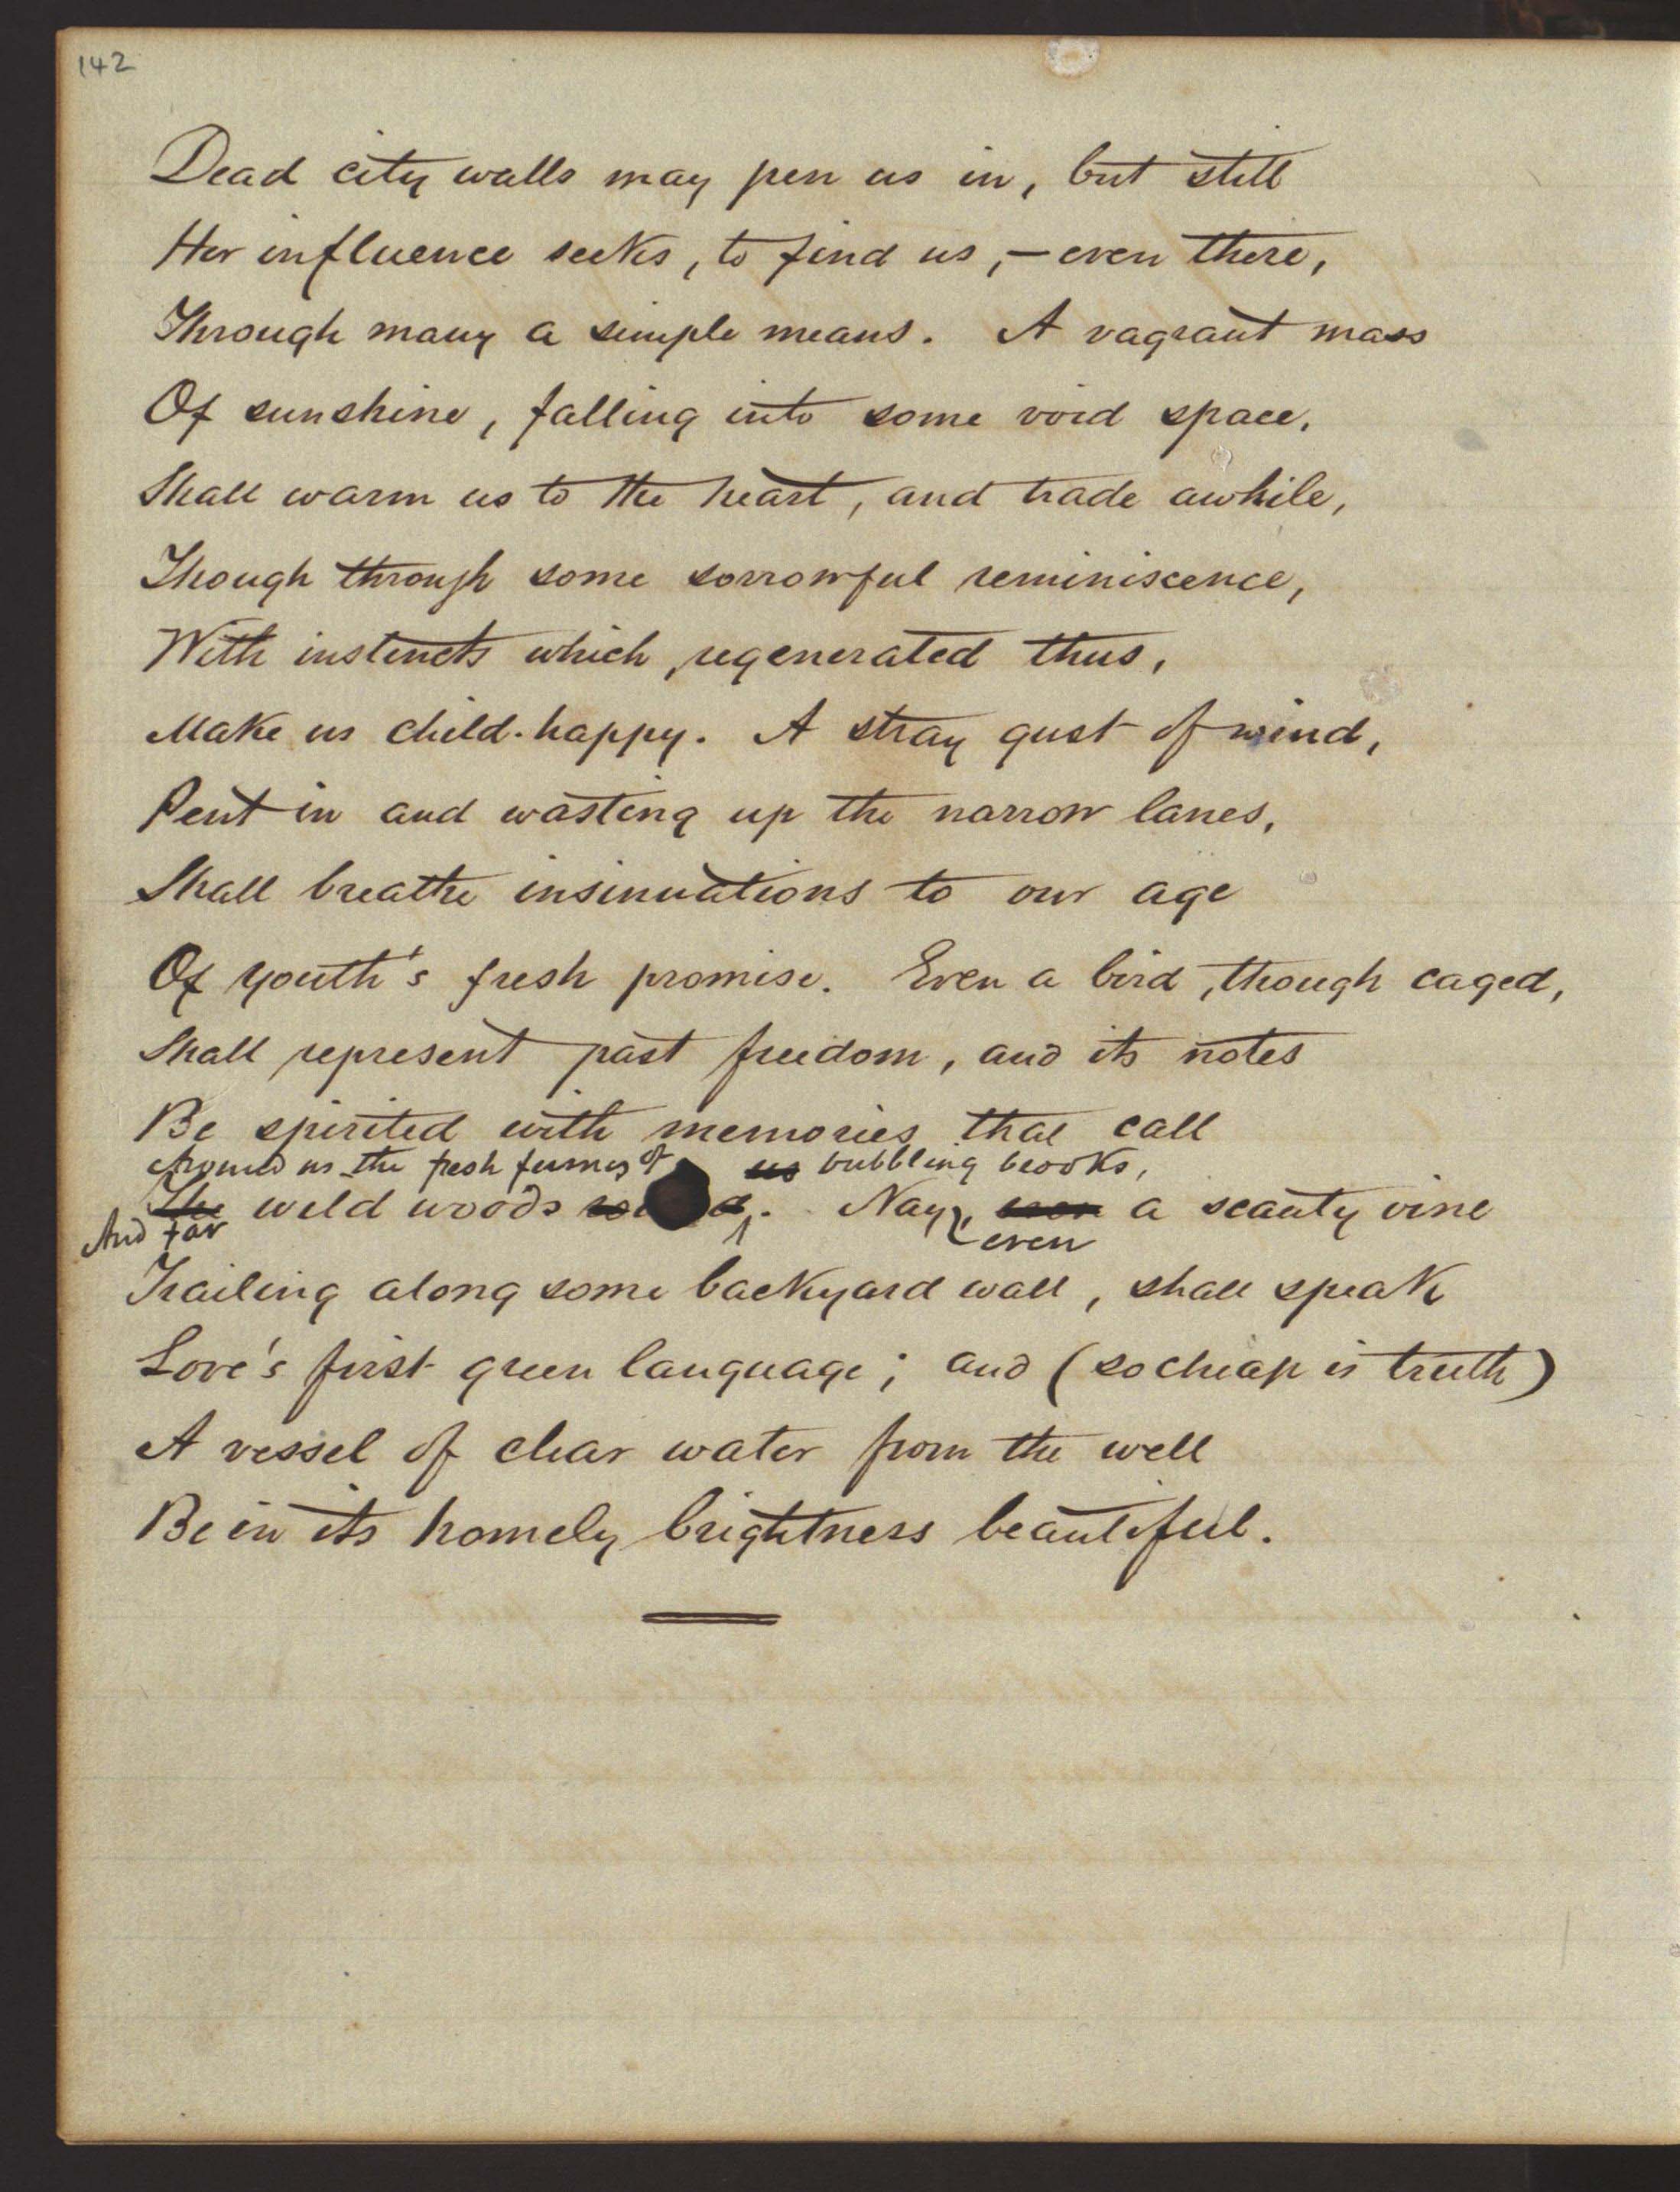 142
Dead city walls may pen us in, but still
Her influence seeks, to find us,—even there,
Through many a simple means. A vagrant mass
Of sunshine, falling into some void space,
Shall warm us to the heart, and trade awhile,
Though through some sorrowful reminiscence,
With instincts which, regenerated thus,
Make us child-happy. A stray gust of wind,
Pent in and wasting up the narrow lanes,
Shall breathe insinuations to our age
Of youth's fresh promise. Even a bird, though caged,
Shall represent past freedom, and its notes
Be spirited with memories that call
Around us the fresh fumes of us bubbling brooks,
The wild woods. Nay, even a scanty vine
And far even
Trailing along some backyard wall, shall speak
Love's first green language; and (so cheap is truth)
A vessel of clear water from the well
Be in its homely brightness beautiful.